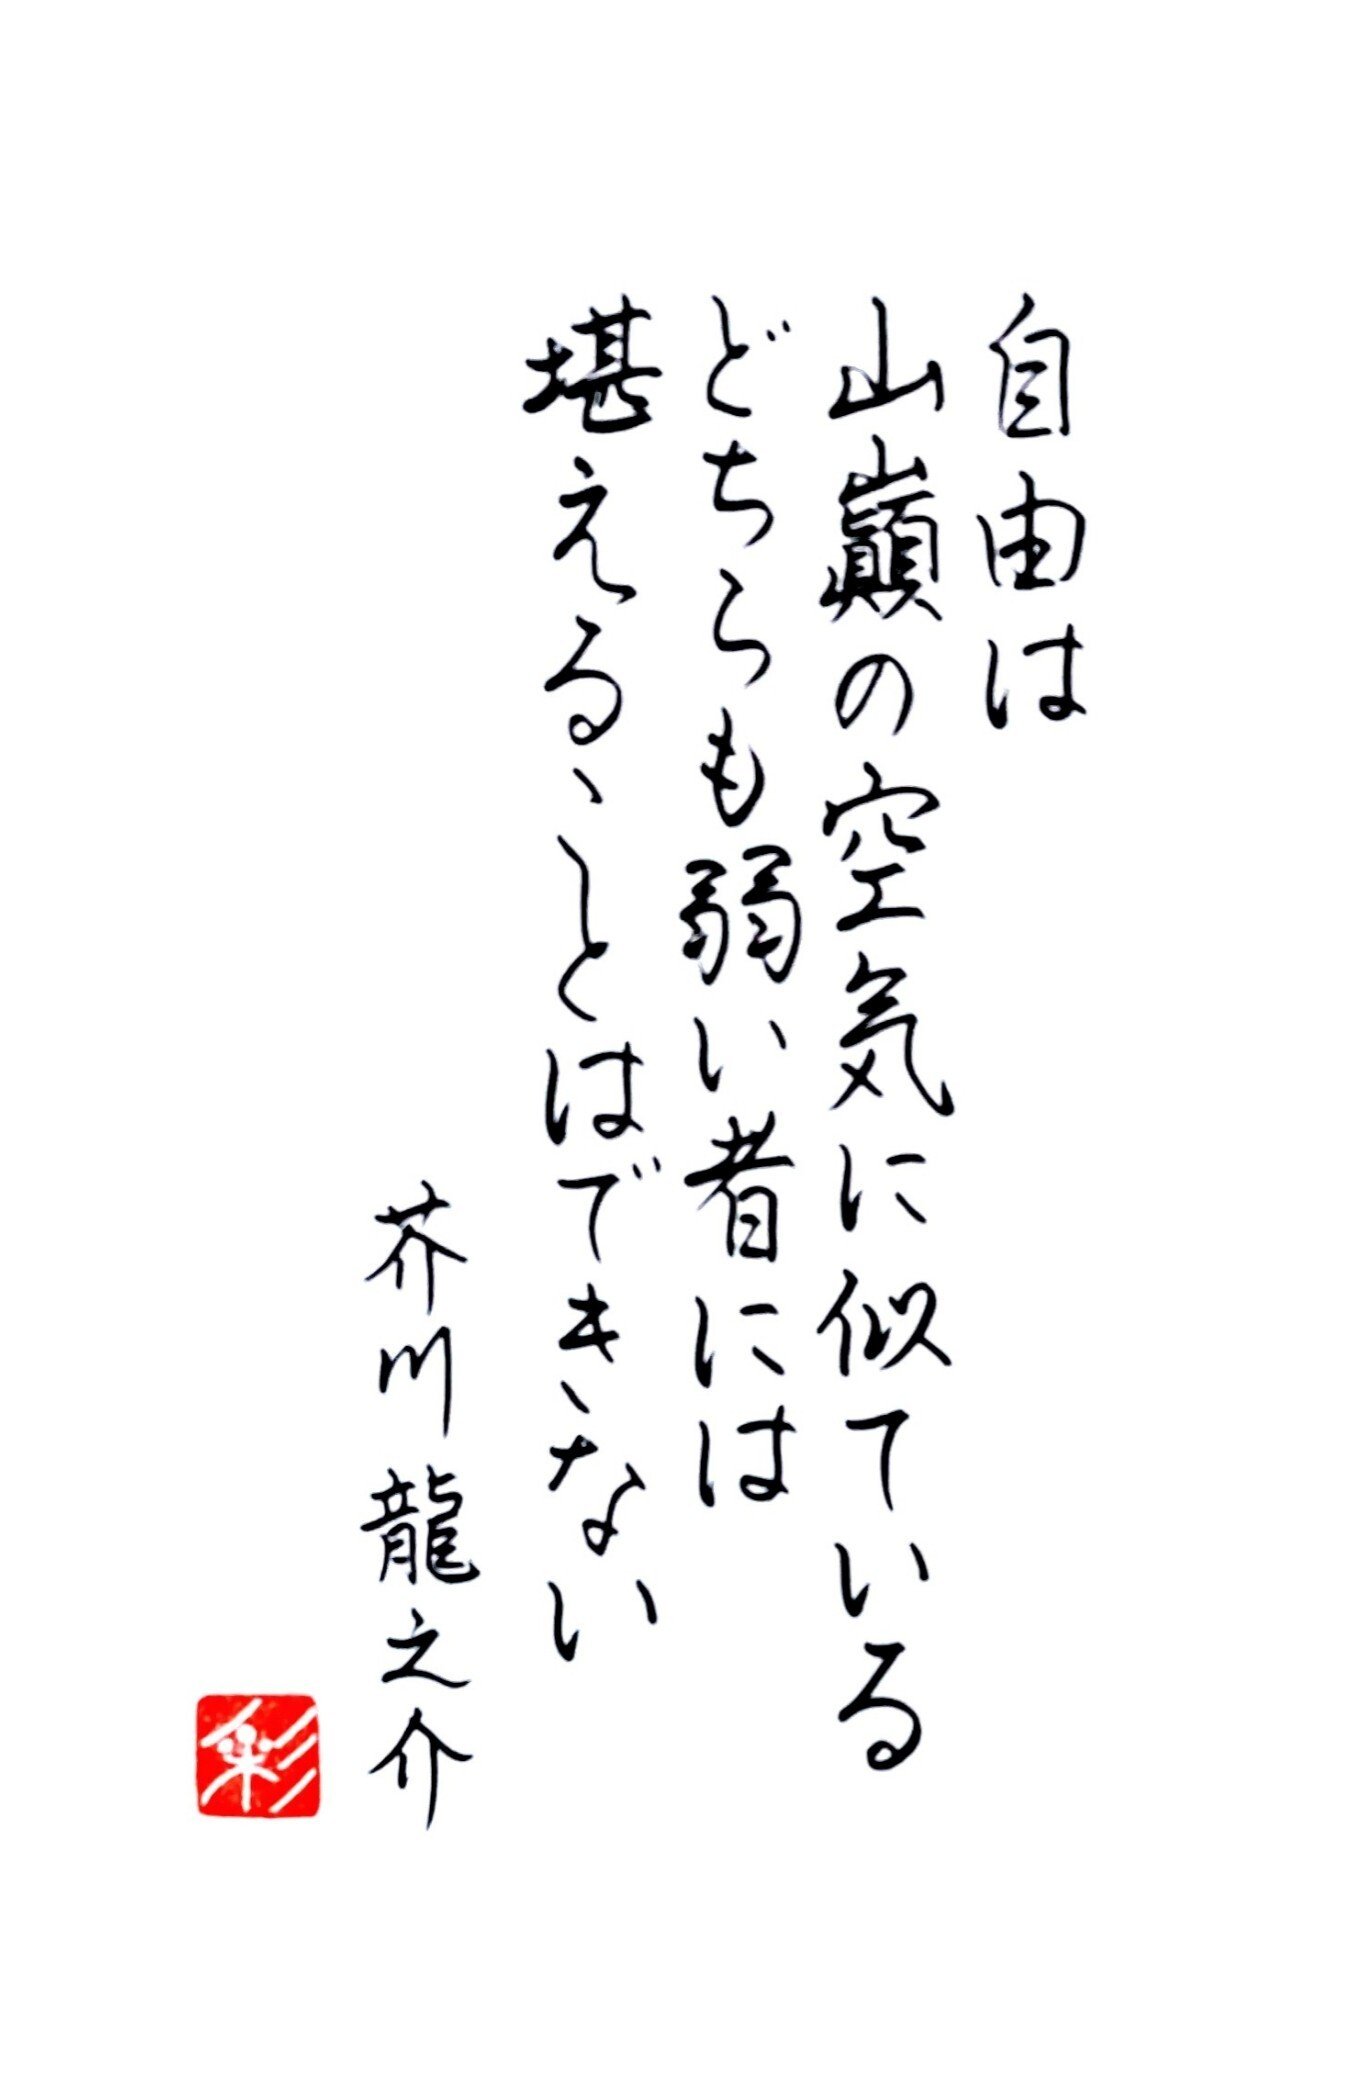 自由は
山巓の空気に似ている
どちらも弱い者には
堪えることはできない
芥川龍之介
彩